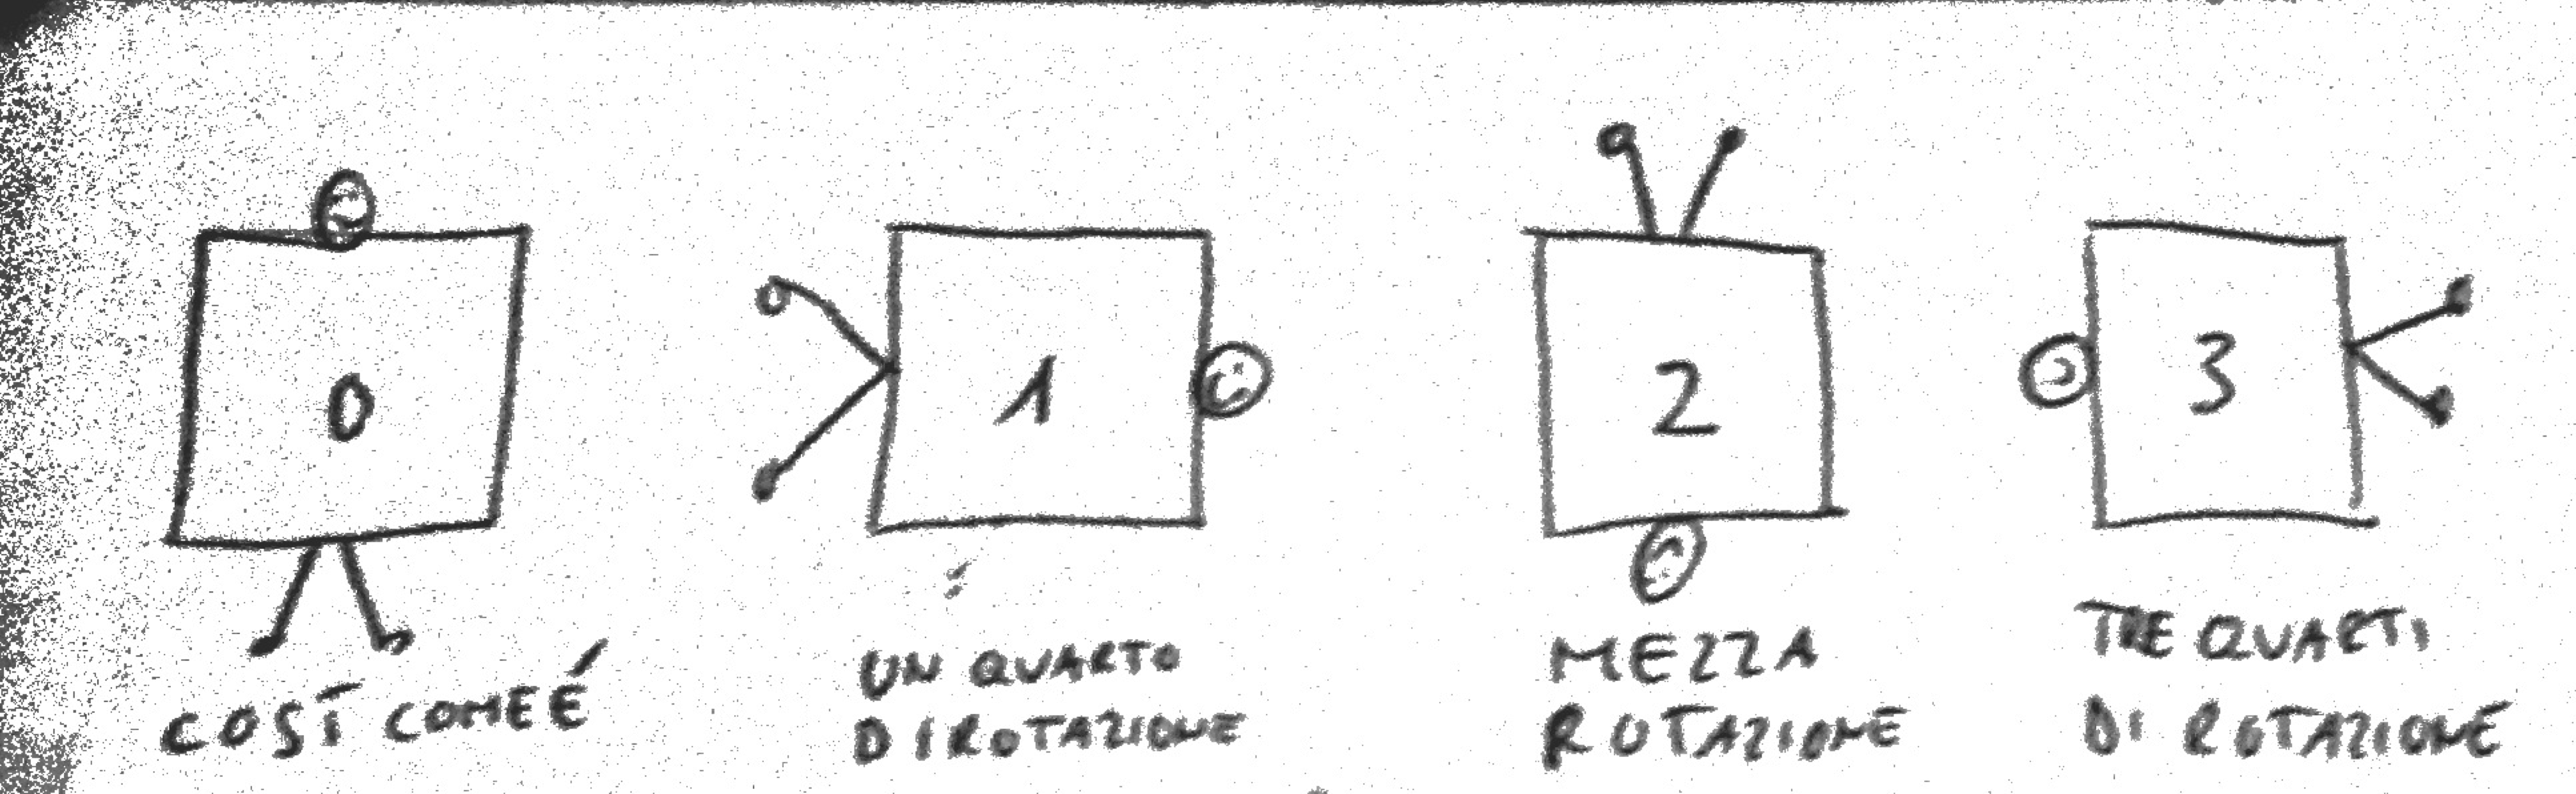 0
1
2
3
COSÌ COME É
UN QUARTO
DI ROTAZIONE
MEZZA
ROTAZIONE
TRE QUARTI
DI ROTAZIONE